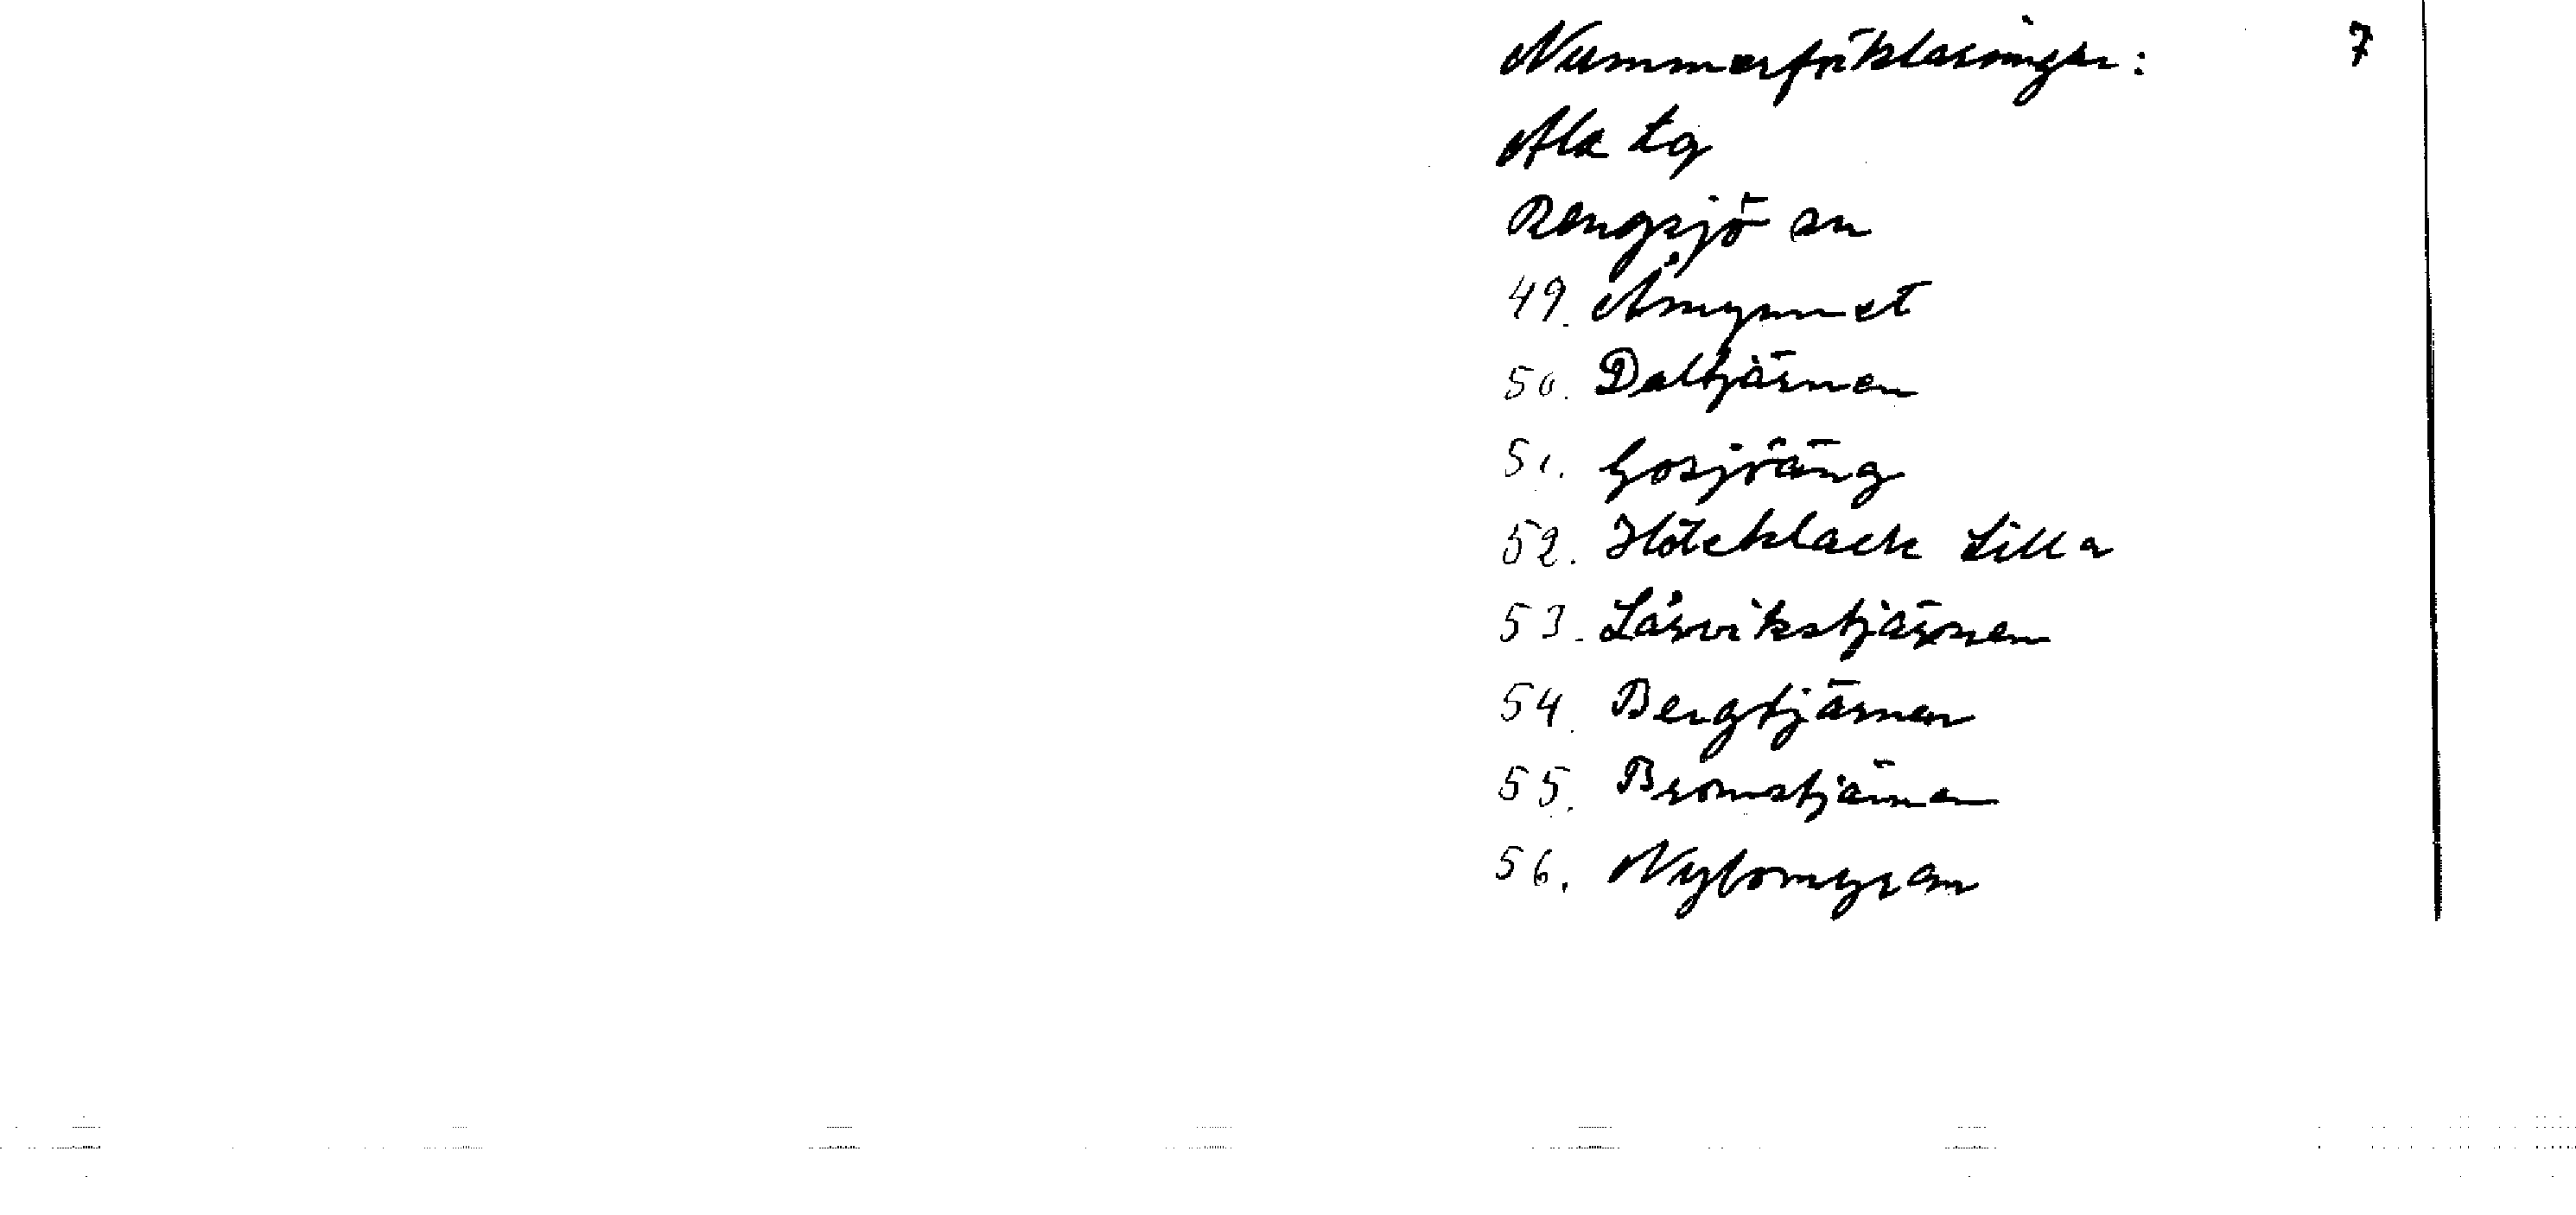 Nummerförklaringar: 7
Ala tg
Rengsjö sn
49. Åmynnet
50. Daltjärnen
51. Gosjöäng
52. Höteklack Lilla
53. Låsvikstjärnen
54. Bergtjärnen
55. Bromstjärnen
56. Nybomyran